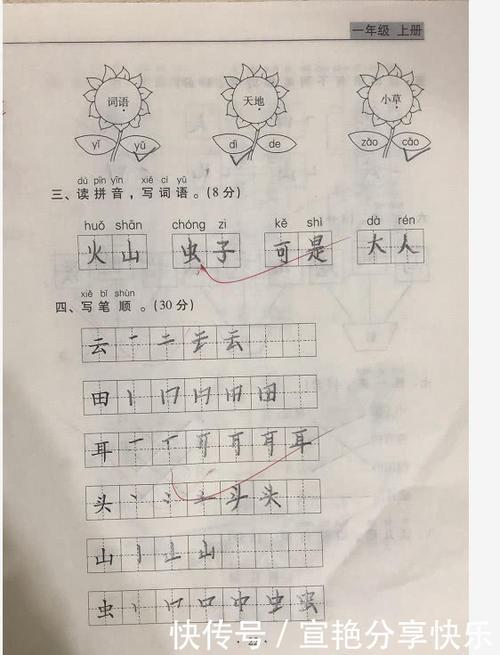 一年级 上册
词语 天地 小草
yǐ yǔ dì de zǎo cǎo
dú pīn yīn xiě cí yǔ
三、读拼音，写词语。(8分)
huǒ shān chóng zi kě shì dà rén
火 山 虫 子 可 是 大 人
xiě bǐ shùn
四、写笔顺。(30分)
云 一 二 云 云
田 丨 冂 冂 田 田
耳 一 丅 耳 耳
头 丶 头 头
山 丨 山 山
虫 丨 口 口 中 虫 虫
· 22 ·
快传号 / 宣艳分享快乐